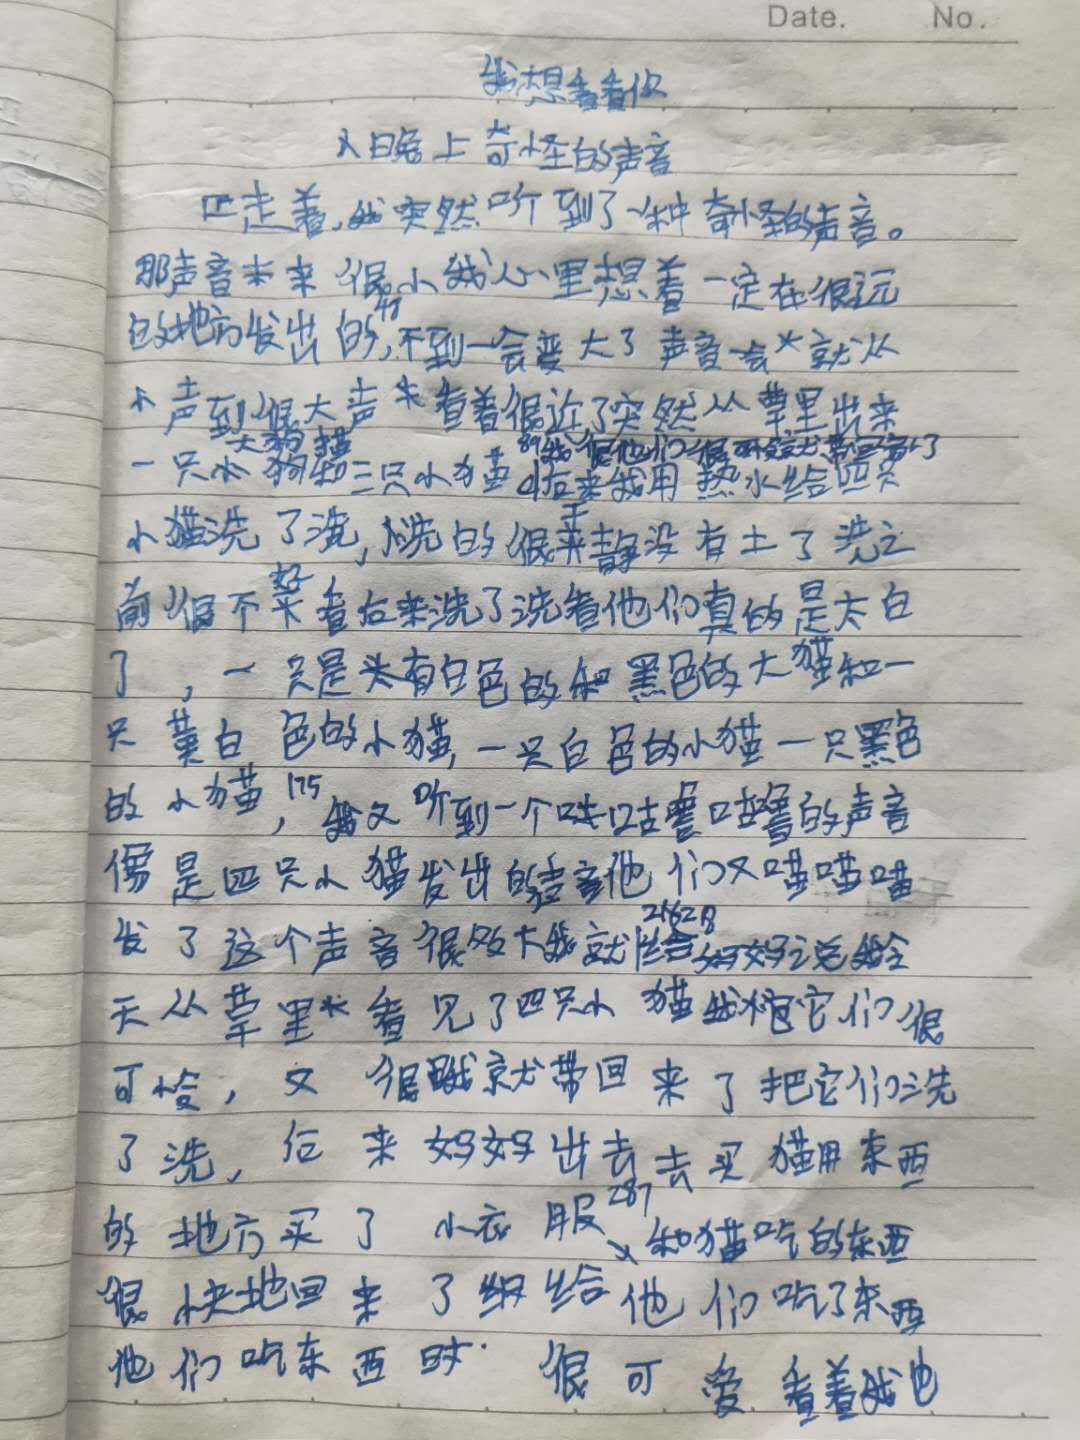 Date. No.
我想看看你
晚上奇怪的声音
走着,我突然听到了一种奇怪的声音。
那声音本来很小我心里想着一定在很远
的地方发出的,不到一会变大了声音会就从
小声到很大声看着很近了突然从草里出来
大狗猫
89我很他们很就带回着了
一只小狗和三只小猫后来我用热水给四只
干
小猫洗了洗,洗的很静没有土了洗之
好
前很不看后来洗了洗看他们真的是太白
了,一只是头有白色的和黑色的大猫和一
只黄白色的小猫,一只白色的小猫一只黑色
的小猫,175我又听到一个咕噜咕噜的声音
像是四只小猫发出的声音他们又喵喵喵
发了这个声音很多大我就给妈妈说我今
天从草里看见了四只小猫我它们很
可怜,又很就带回来了把它们洗
了洗,后来妈妈出去去买猫用东西
的地方买了小衣服287和猫吃的东西
很快地回来了给他们吃了东西
他们吃东西时很可爱看着我也